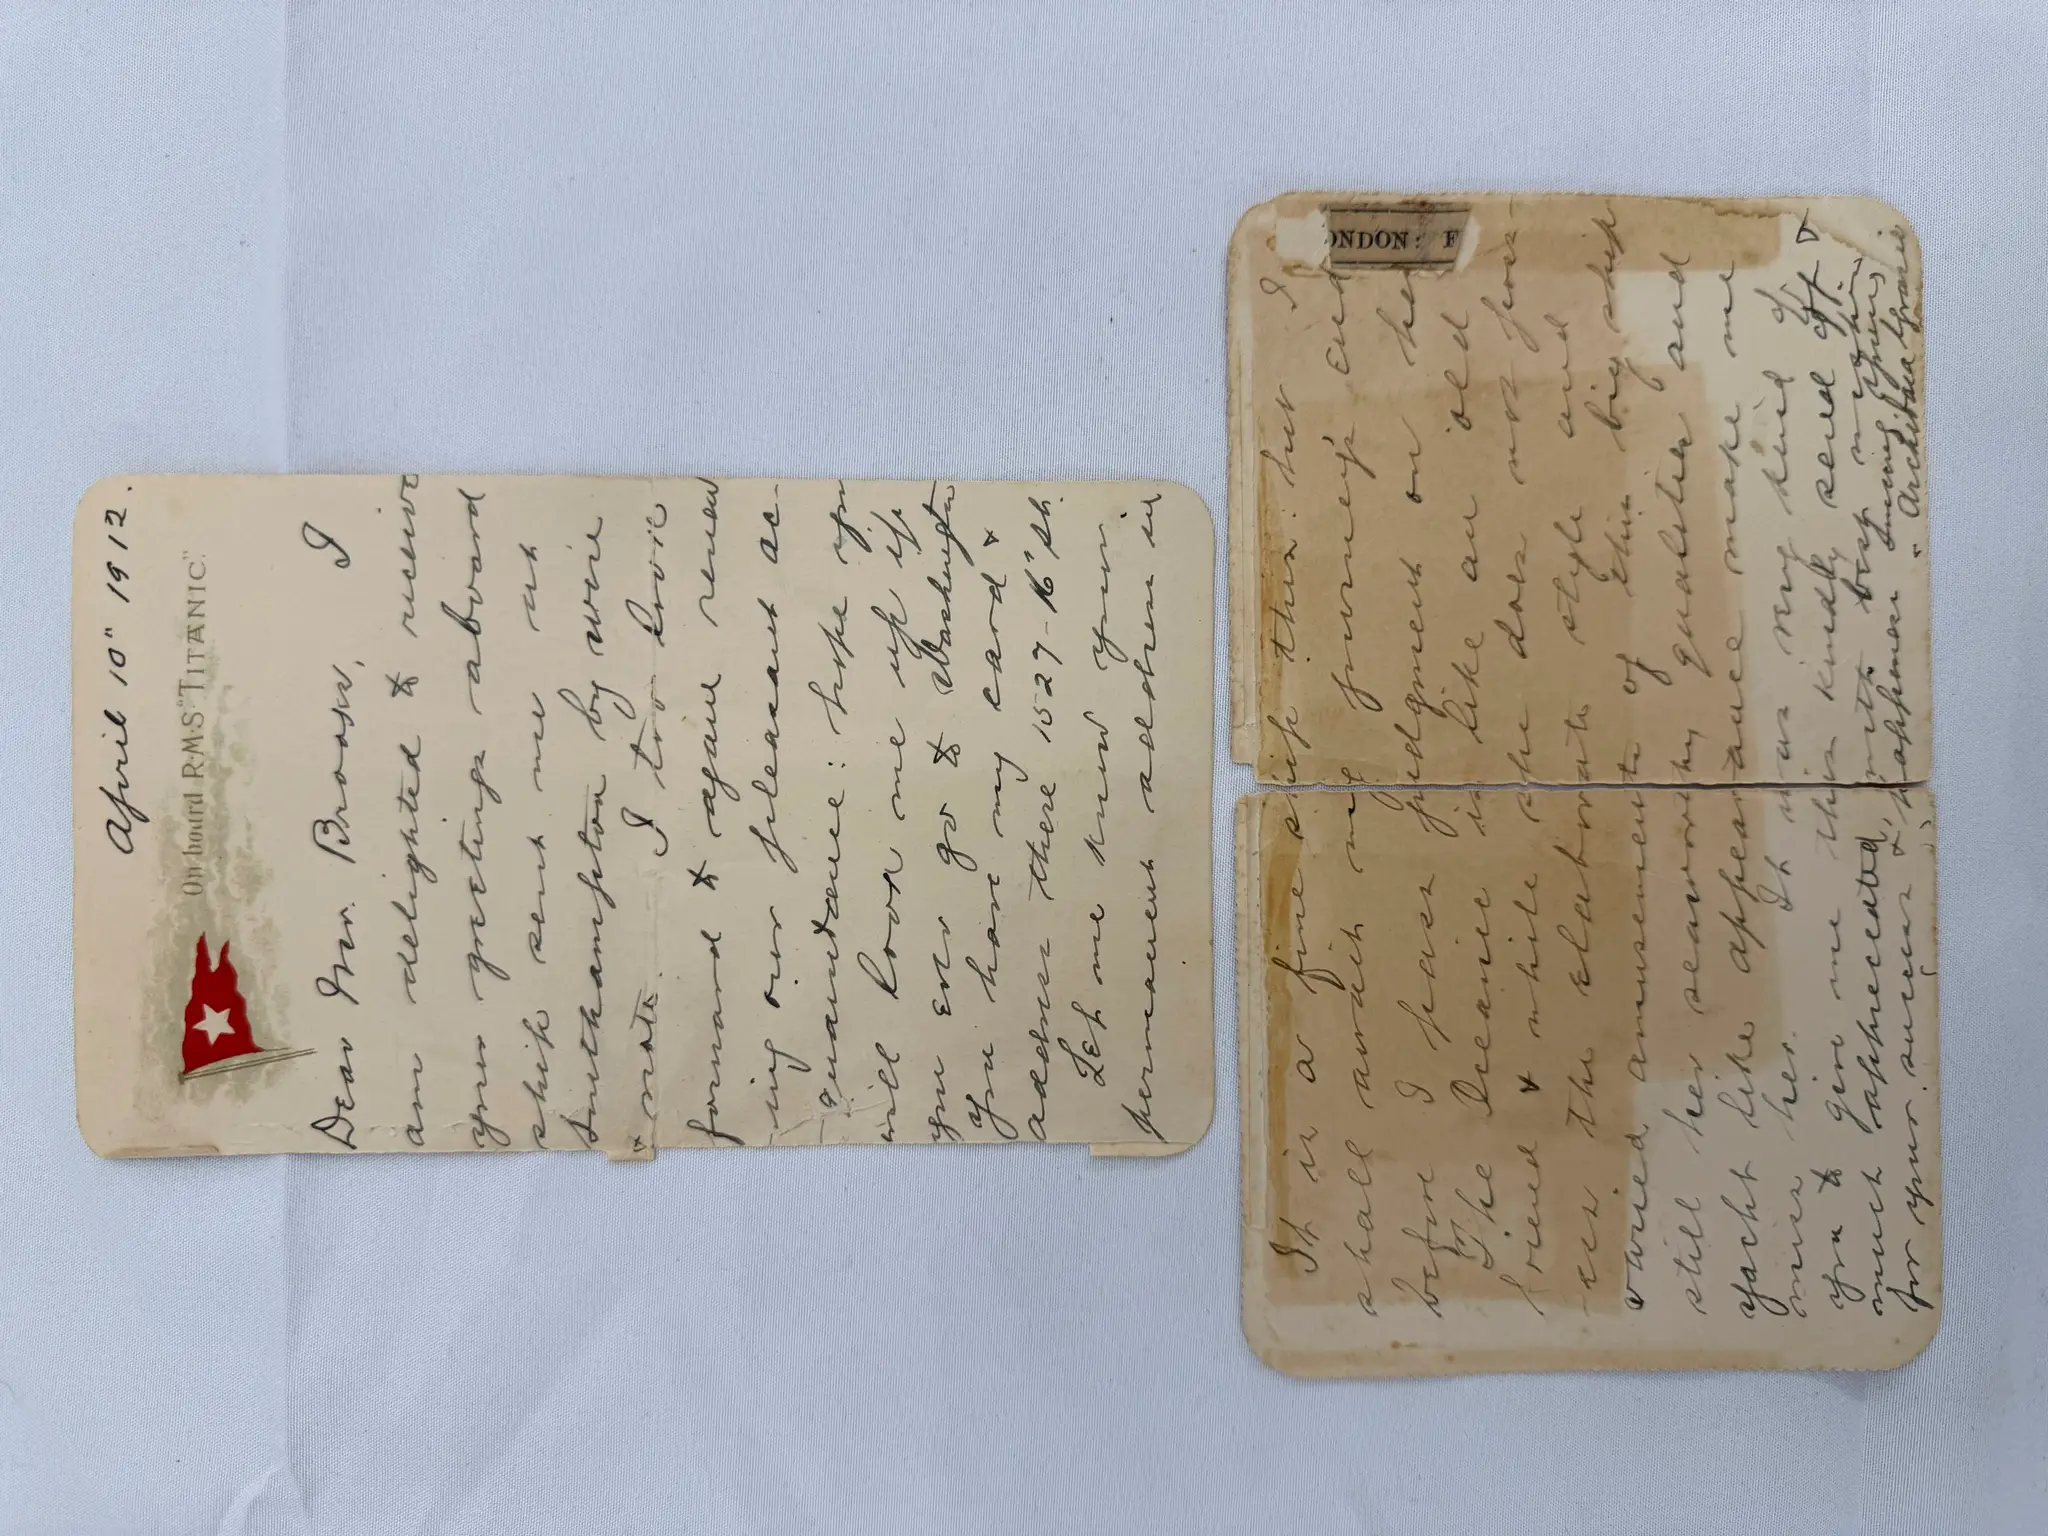 April 10" 1912.
On board R·M·S·"TITANIC".
Dear Mr. Broosw, I
am delighted to receive
your greetings aboard
ship sent me at
Southampton by wire
& note. I too look
forward to again renew
-ing our pleasant ac-
quaintance: hope you
will look me up if
you ever go to Washington
You have my card &
address there 1527-16" St.
Let me know your
permanent address in
It is a fine ship this: but I
shall await my journey's end
before I pass judgment on her
The Oceanic is like an old
friend & while she does not poss-
-ess the elaborate style and
varied amusements of this big ship
still her seaworthy qualities and
yacht like appearance make me
miss her. It was very kind of
you to give me this kindly send off
much appreciated, with best wishes
for your success & happiness Sincerely yours
"Archibald Gracie
ONDON: F